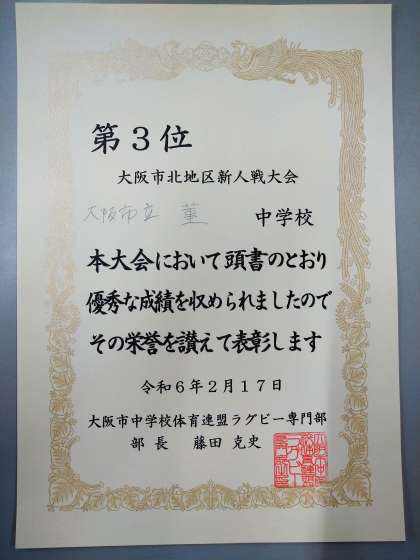 第３位
大阪市北地区新人戦大会
大阪市立 菫 中学校
本大会において頭書のとおり
優秀な成績を収められましたので
その栄誉を讃えて表彰します
令和６年２月１７日
大阪市中学校体育連盟ラグビー専門部
部長 藤田 克史